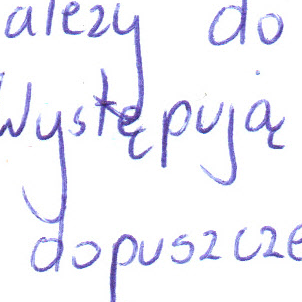 ależy do
Występują
dopuszcze